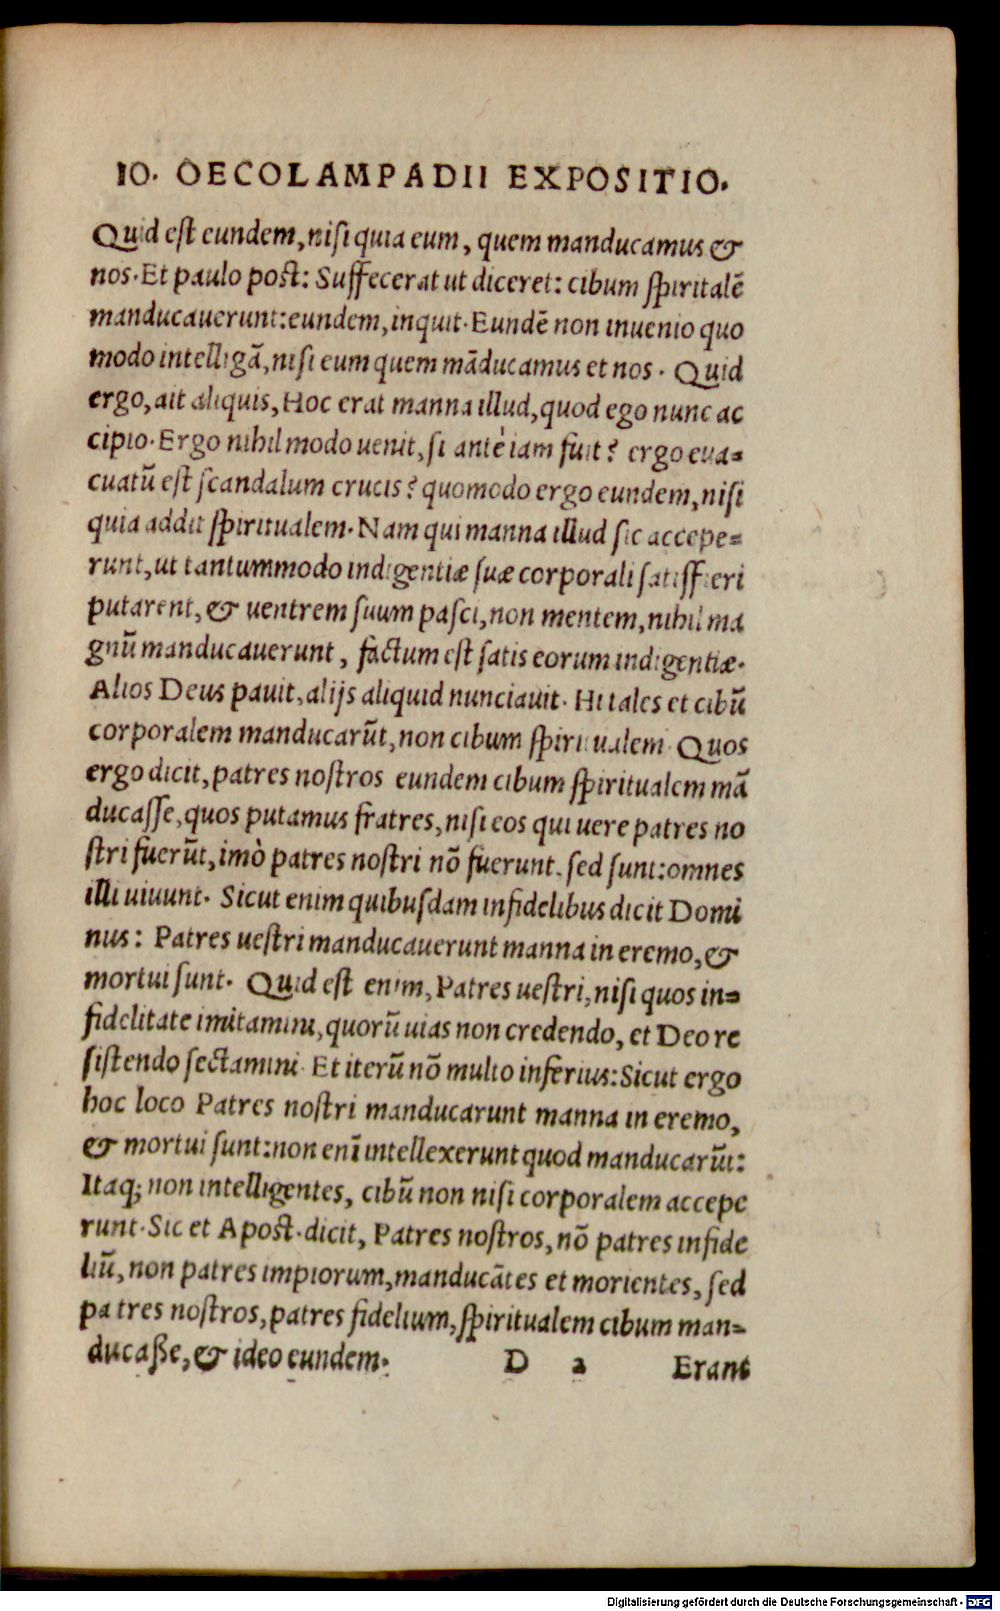 IO. OECOLAMPADII EXPOSITIO.
Quid est eundem, nisi quia eum, quem manducamus &
nos. Et paulo post: Suffecerat ut diceret: cibum spiritalē
manducauerunt: eundem, inquit. Eundē non inuenio quo
modo intelligā, nisi eum quem māducamus et nos. Quid
ergo, ait aliquis, Hoc erat manna illud, quod ego nunc ac
cipio. Ergo nihil modo uenit, si antè iam fuit? ergo eua=
cuatū est scandalum crucis? quomodo ergo eundem, nisi
quia addit spiritualem. Nam qui manna illud sic accepe=
runt, ut tantummodo indigentiæ suæ corporali satisfieri
putarent, & uentrem suum pasci, non mentem, nihil ma
gnū manducauerunt, factum est satis eorum indigentiæ.
Alios Deus pauit, alijs aliquid nunciauit. Hi tales et cibū
corporalem manducarūt, non cibum spiritualem. Quos
ergo dicit, patres nostros eundem cibum spiritualem mā
ducasse, quos putamus fratres, nisi eos qui uere patres no
stri fuerūt, imò patres nostri nō fuerunt. sed sunt: omnes
illi uiuunt. Sicut enim quibusdam infidelibus dicit Domi
nus: Patres uestri manducauerunt manna in eremo, &
mortui sunt. Quid est enim, Patres uestri, nisi quos in=
fidelitate imitamini, quorū uias non credendo, et Deo re
sistendo sectamini. Et iterū nō multo inferius: Sicut ergo
hoc loco Patres nostri manducarunt manna in eremo,
& mortui sunt: non enī intellexerunt quod manducarūt:
Itaq; non intelligentes, cibū non nisi corporalem accepe
runt. Sic et Apost. dicit, Patres nostros, nō patres infide
liū, non patres impiorum, manducātes et morientes, sed
patres nostros, patres fidelium, spiritualem cibum man=
ducaße, & ideo eundem. D 2 Erant
Digitalisierung gefördert durch die Deutsche Forschungsgemeinschaft - DFG